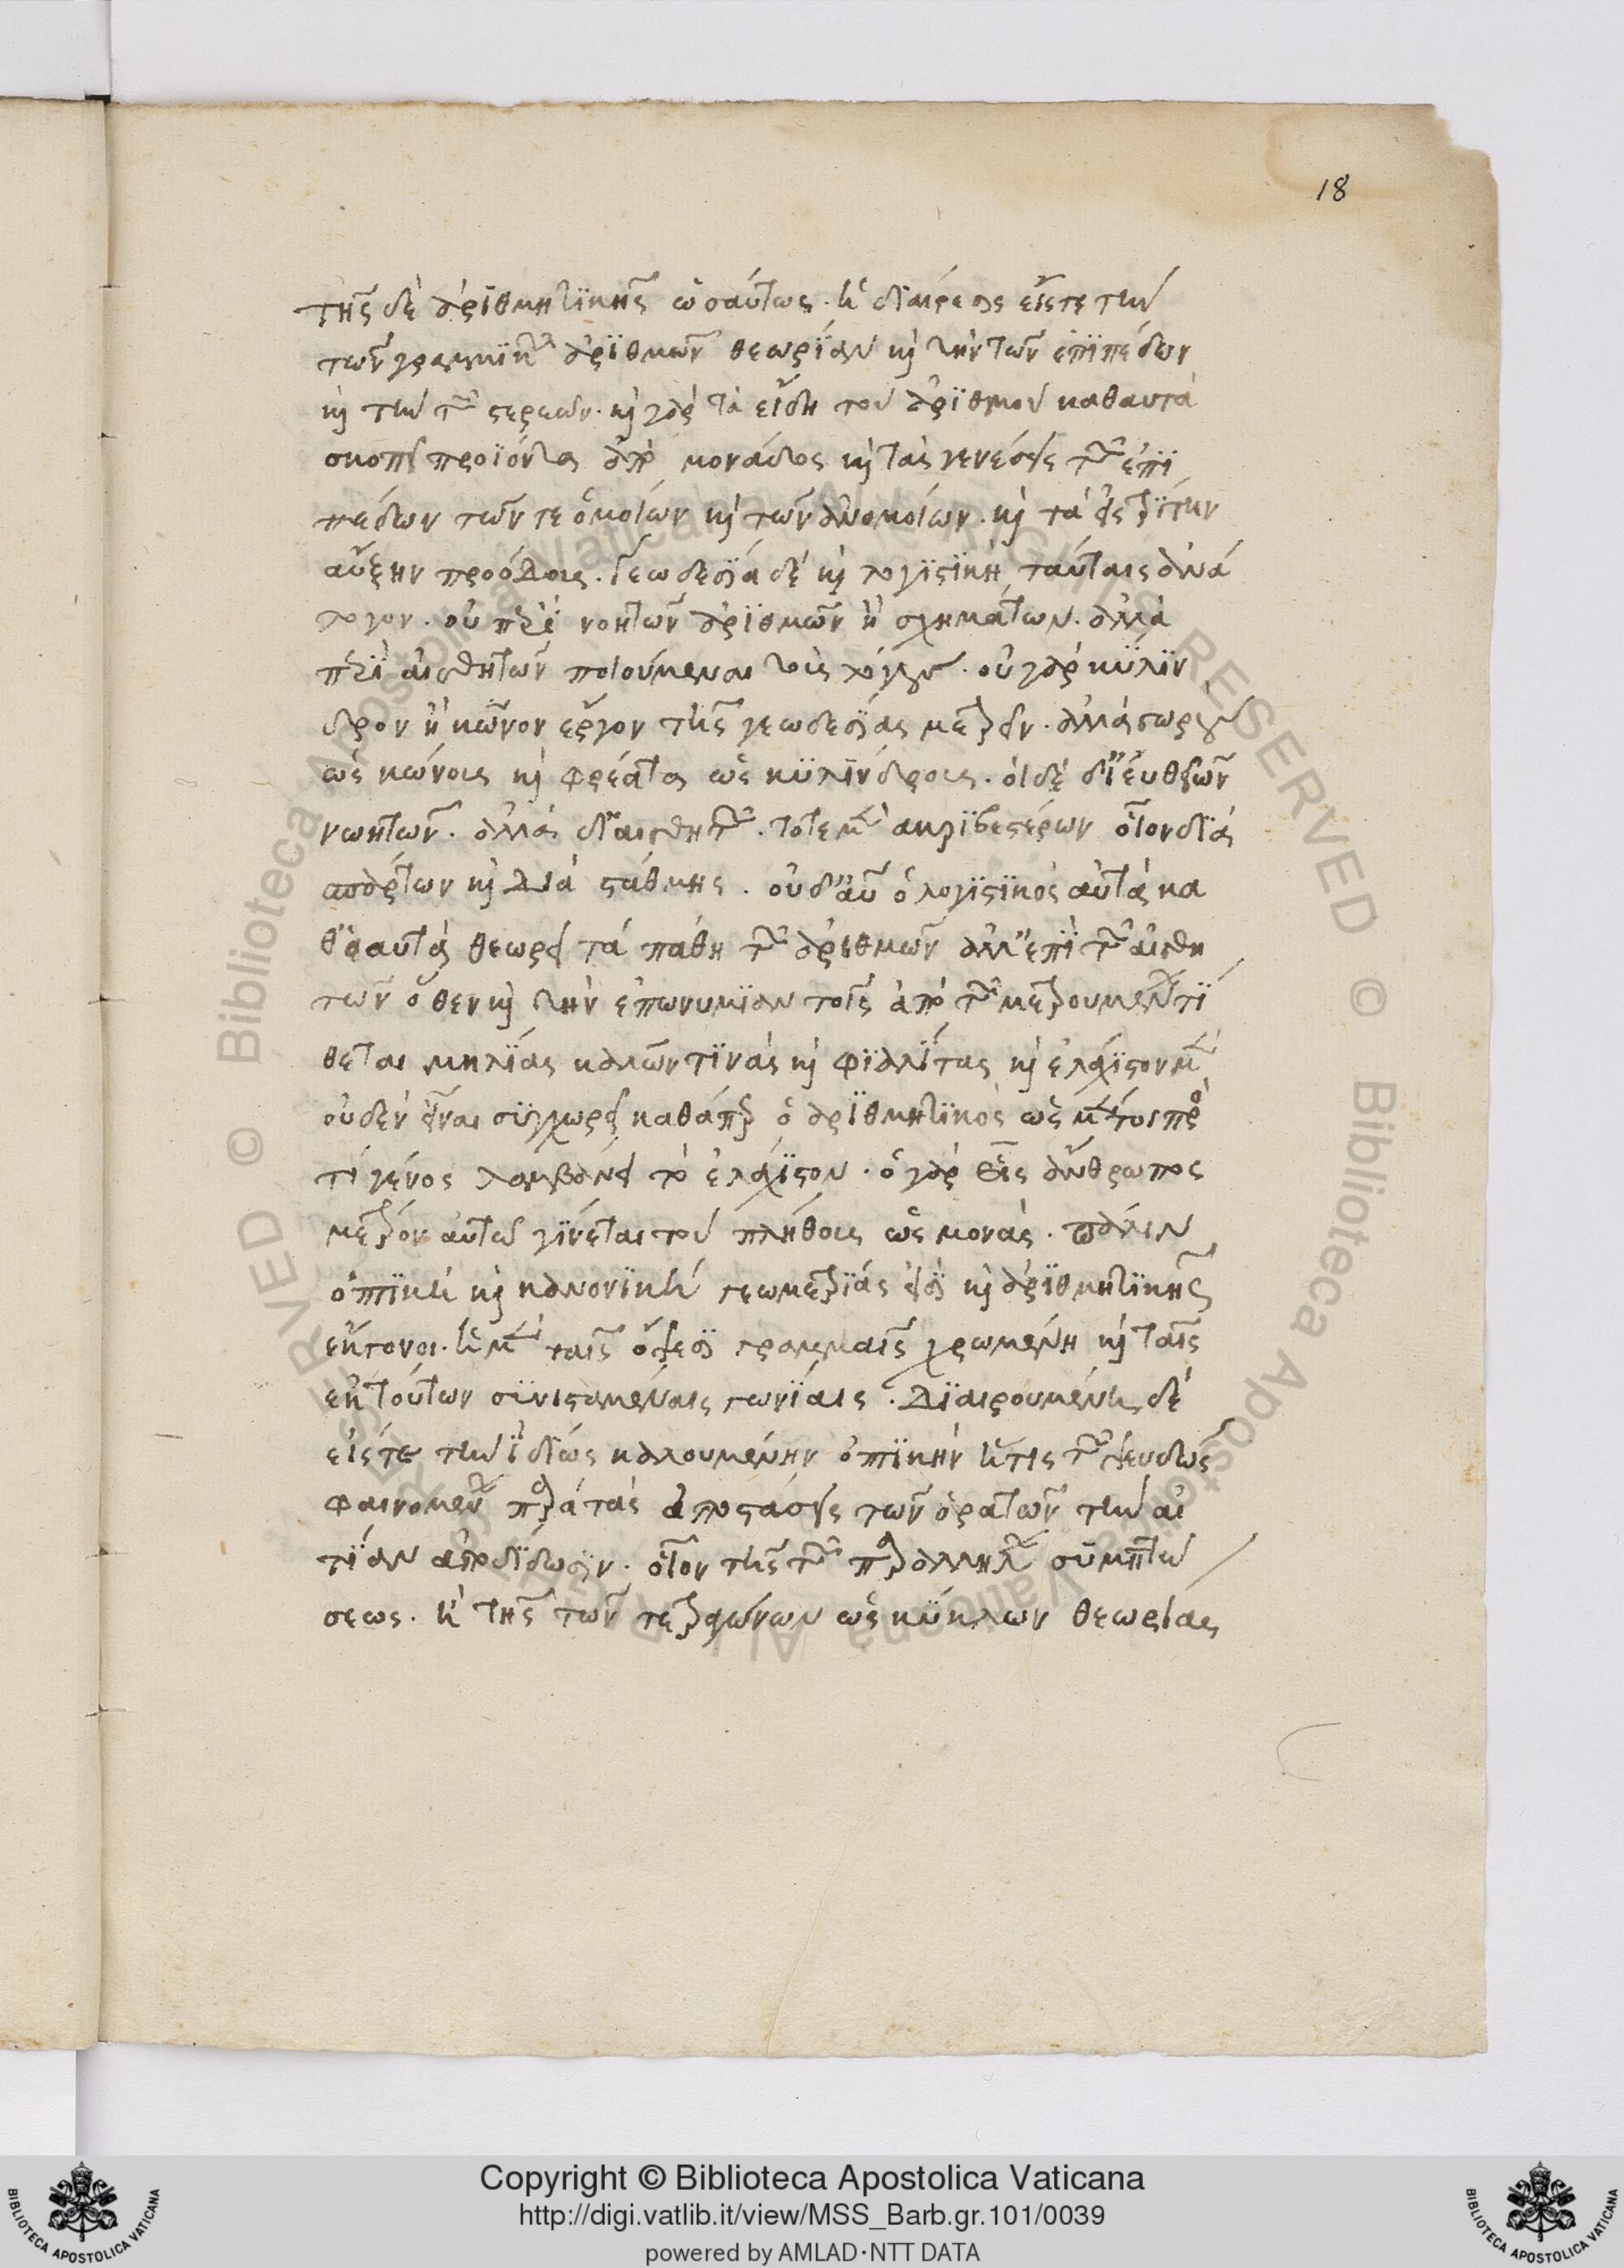 18
τῆς δὲ ἀριθμητικῆς ὡσαύτως. ἡ διαίρεσις εἴς τε τὴν
τῶν γραμμικῶν ἀριθμῶν θεωρίαν καὶ τὴν τῶν ἐπιπέδων
καὶ τὴν τῶν στερεῶν. καὶ γὰρ τὰ εἴδη τοῦ ἀριθμοῦ καθ αυτὰ
σκοπεῖ προϊόντα ἀπὸ μονάδος καὶ τὰς γενέσεις τῶν ἐπι
πέδων τῶν τε ὁμοίων καὶ τῶν ἀνομοίων. καὶ τὰ εἰς τρίτην
αὔξην προόδους. Γεωδεσία δὲ καὶ λογιστικὴ ταύταις ἀνά
λογον. οὐ περὶ νοητῶν ἀριθμῶν ἢ σχημάτων. ἀλλὰ
περὶ αἰσθητῶν ποιούμεναι τοὺς λόγους. οὐ γὰρ κύλιν
δρον ἢ κῶνον ἔργον τῆς γεωδεσίας μετρεῖν. ἀλλὰ σωροὺς
ὡς κώνους καὶ φρέατα ὡς κυλίνδρους. οὐδὲ δι' εὐθειῶν
νωητῶν. ἀλλὰ δι' αισθητῶν. τοτὲ μὲν ἀκριβεστέρων οἷον διὰ
ἀκτίνων καὶ διὰ στάθμης. οὐδ' αὖ ὁ λογιστικὸς αὐτὰ κα
θ' ἑαυτὰ θεωρεῖ τὰ πάθη τῶν ἀριθμῶν ἀλλ' ἐπὶ τῶν αἰσθη
τῶν ὅθεν καὶ τὴν ἐπωνυμίαν τοῖς ἀπὸ τῶν μετρουμένων τί
θεται μηλίας καλῶν τινὰς καὶ φιαλίτας καὶ ἐλάχιστον μὲν
οὐδὲν εἶναι συγχωρεῖ καθάπερ ὁ ἀριθμητικὸς ὡς μέντοι πρὸς
τὶ γένος λαμβάνει τὸ ἐλάχιστον. ὁ γὰρ εἷς ἄνθρωπος
μέτρον αὐτῶ γίνεται τοῦ πλήθους ὡς μονὰς. πάλιν
ὀπτικὴ καὶ κανονικὴ γεωμετρίας εἰσὶ καὶ ἀριθμητικῆς
ἔκγονοι. ἡ μὲν ταῖς ὄψεσι γραμμαῖς χρωμένη καὶ ταῖς
ἐκ τούτων συνισταμέναις γωνίαις. Διαιρουμένη δὲ
εἰς τε τὴν ἰδίως καλουμένην ὀπτικὴν ἥτις τῶν ψευδῶς
φαινομένων παρὰ τὰς ἀποστάσεις τῶν ὁρατῶν τὴν αἰ
τίαν ἀποδίδωσιν. οἷον τῆς τῶν παραλλήλων συμπτώ
σεως. ἢ τῆς τῶν τετραγώνων ὡς κύκλων θεωρίας
Copyright © Biblioteca Apostolica Vaticana
http://digi.vatlib.it/view/MSS_Barb.gr.101/0039
powered by AMLAD·NTT DATA